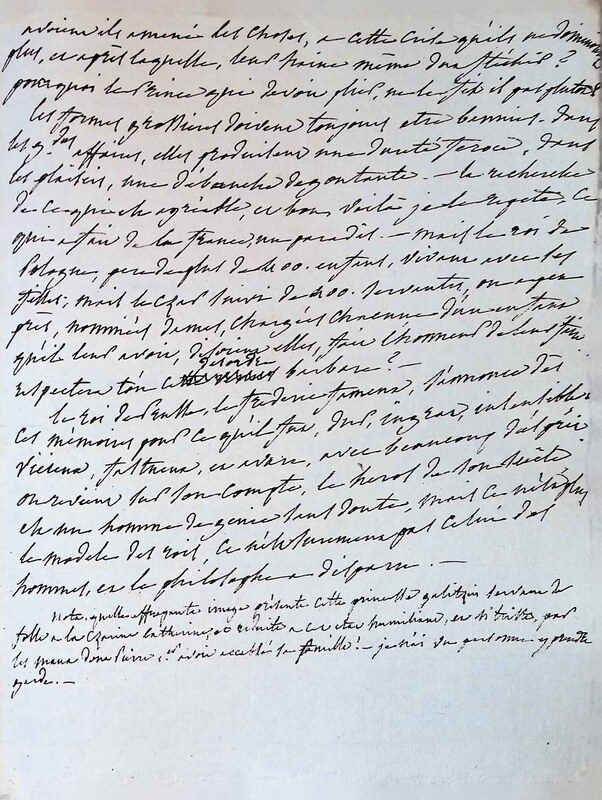 avoient ils amené les choses, a cette crise qu'ils ne dominoient
plus, et après laquelle, leur haine même dut fléchir?
pourquoi le Prince qui devoit plier, ne le fit il pas plutot?
les formes grossieres doivent toujours etre bannies. dans
les g.des affaires, elles produisent une dureté feroce, dans
les plaisirs, une débauche degoutante. — la recherche
de ce qui est agréable, et bon, voila je le repete, ce
qui a fait de la france, un paradis. — mais le roi de
Pologne, pere de plus de 400. enfans, vivant avec ses
filles; mais le Czar suivi de 400. servantes, ou a peu
près, nommées dames, chargées chacune d'un enfant
qu'il leur avoit, disoient elles, fait l'honneur de leur faire
respectera t'on ce desordre barbare? —
le roi de Prusse, le frederic fameux, s'annonce dès
ces memoires pour ce qu'il fut, dur, ingrat, insensible.
Vicieux, fastueux, et avare, avec beaucoup d'esprit
on revient sur son compte, le heros de son siècle
est un homme de genie sans doute, mais ce n'est plus
le modele des rois, ce n'est surement pas celui des
hommes, et le philosophe a disparu. —
Note, quelle affligeante image présente cette princesse galitzin servant de
folle a la Czarine Catherine, et reduite a cet etat humiliant, et si triste, par
les maux dont Pierre 1.er avoit accablé sa famille! — je n'ai vu personne y prendre
garde. —